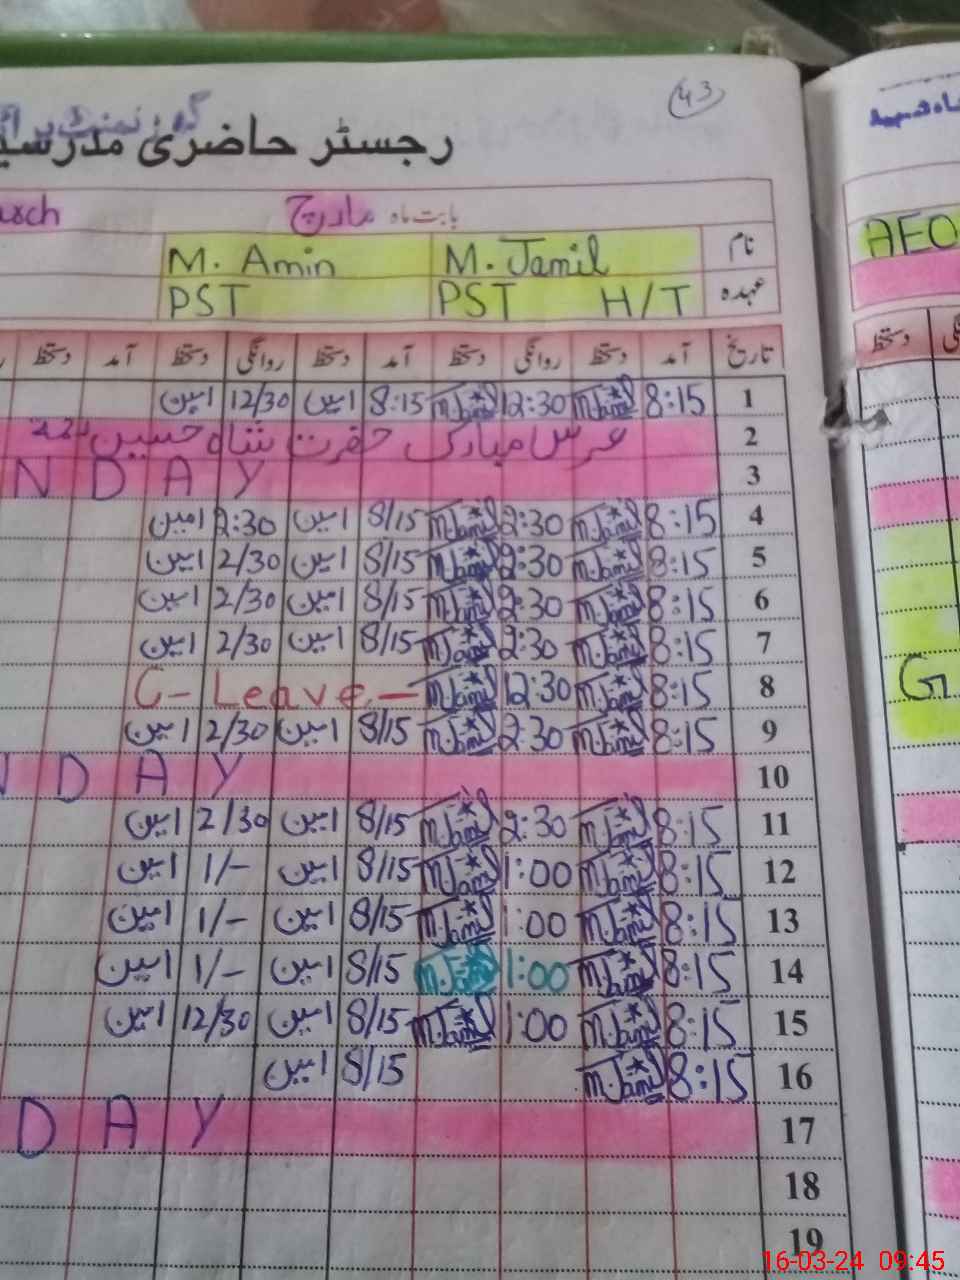 43
گورنمنٹ پرائ
رجسٹر حاضری مدرسی
بابت ماہ مارچ arch
نام M. Jamil M. Amin
عہدہ PST H/T PST
تاریخ آمد دستخط روانگی دستخط آمد دستخط روانگی دستخط آمد دستخط
1 8:15 M.Jamil 12:30 M.Jamil 8:15 امین 12/30 امین
2 عرس مبارک حضرت شاہ حسین
3 N D A Y
4 8:15 M.Jamil 2:30 M.Jamil 8/15 امین 2:30 امین
5 8:15 M.Jamil 2:30 M.Jamil 8/15 امین 2/30 امین
6 8:15 M.Jamil 2:30 M.Jamil 8/15 امین 2/30 امین
7 8:15 M.Jamil 2:30 M.Jamil 8/15 امین 2/30 امین
8 8:15 M.Jamil 12:30 M.Jamil C- Leave -
9 8:15 M.Jamil 2:30 M.Jamil 8/15 امین 2/30 امین
10 N D A Y
11 8:15 M.Jamil 2:30 M.Jamil 8/15 امین 2/30 امین
12 8:15 M.Jamil 1:00 M.Jamil 8/15 امین 1/- امین
13 8:15 M.Jamil 1:00 M.Jamil 8/15 امین 1/- امین
14 8:15 M.Jamil 1:00 M.Jamil 8/15 امین 1/- امین
15 8:15 M.Jamil 1:00 M.Jamil 8/15 امین 12/30 امین
16 8:15 M.Jamil 8/15 امین
17 D A Y
18
19
AEO
دستخط
G
16-03-24 09:45